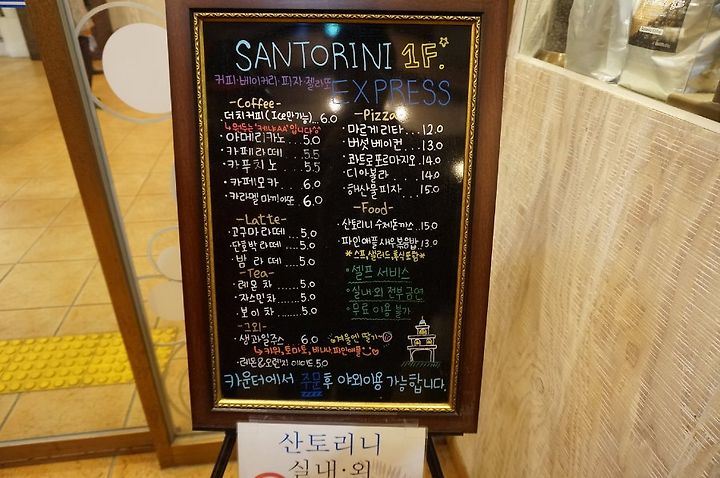 SANTORINI 1F.
커피·베이커리·피자·젤라또
EXPRESS
-Coffee-
더치커피(Ice만가능)...6.0
↳원두는 '케냐AA'입니다
·아메리카노 ... 5.0
·카페라떼 ... 5.5
·카푸치노 ... 5.5
·카페모카 ... 6.0
·카라멜마끼아또 6.0
-Latte-
·고구마라떼 .... 5.0
·단호박라떼 .... 5.0
·밤 라 떼 .... 5.0
-Tea-
·레몬차 ....... 5.0
·자스민차 ...... 5.0
·보이차 ....... 5.0
-그외-
·생과일주스 .... 6.0 겨울엔 딸기~
↳키위,토마토,바나나,파인애플
·레몬&오렌지 에이드 5.0
-Pizza-
·마르게리타 ... 12.0
·버섯베이컨 ... 13.0
·콰트로포르마지오 . 14.0
·디아볼라 .... 14.0
·해산물피자 ... 15.0
-Food-
·산토리니 수제돈까스..15.0
·파인애플새우볶음밥.13.0
*스프,샐러드,후식포함*
·셀프 서비스
·실내외 전부 금연
·무료 이용 불가
카운터에서 주문 후 야외이용 가능합니다.
산토리니
실내·외